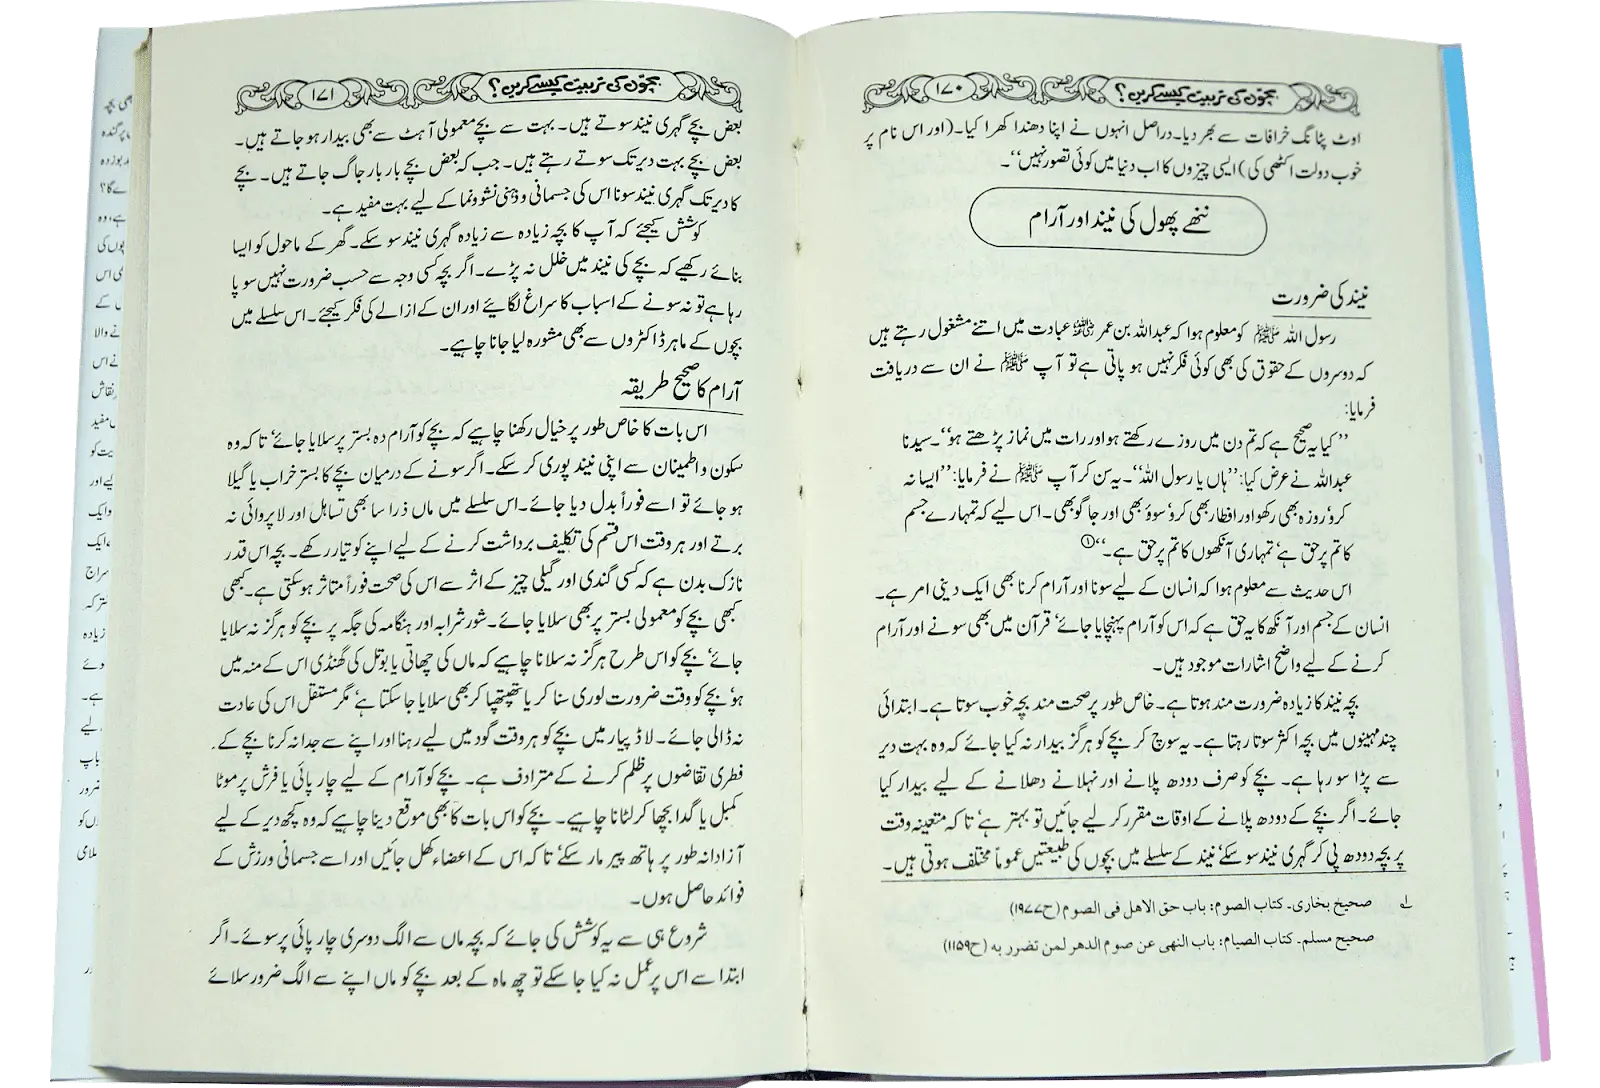 بچوں کی تربیت کیسے کریں؟
۱۷۰
اوٹ پٹانگ خرافات سے بھر دیا۔ دراصل انہوں نے اپنا دھندا کھرا کیا۔ (اور اس نام پر
خوب دولت اکٹھی کی) ایسی چیزوں کا اب دنیا میں کوئی تصور نہیں‘‘۔
ننھے پھول کی نیند اور آرام
نیند کی ضرورت
رسول اللہ ﷺ کو معلوم ہوا کہ عبداللہ بن عمر ﷺ عبادت میں اتنے مشغول رہتے ہیں
کہ دوسروں کے حقوق کی بھی کوئی فکر نہیں ہو پاتی ہے تو آپ ﷺ نے ان سے دریافت
فرمایا:
’’کیا یہ صحیح ہے کہ تم دن میں روزے رکھتے ہو اور رات میں نماز پڑھتے ہو‘‘۔ سیدنا
عبداللہ نے عرض کیا: ’’ہاں یا رسول اللہ‘‘۔ یہ سن کر آپ ﷺ نے فرمایا: ’’ایسا نہ
کرو‘ روزہ بھی رکھو اور افطار بھی کرو‘ سوؤ بھی اور جاگو بھی۔ اس لیے کہ تمہارے جسم
کا تم پر حق ہے‘ تمہاری آنکھوں کا تم پر حق ہے۔‘‘①
اس حدیث سے معلوم ہوا کہ انسان کے لیے سونا اور آرام کرنا بھی ایک دینی امر ہے۔
انسان کے جسم اور آنکھ کا یہ حق ہے کہ اس کو آرام پہنچایا جائے‘ قرآن میں بھی سونے اور آرام
کرنے کے لیے واضح اشارات موجود ہیں۔
بچہ نیند کا زیادہ ضرورت مند ہوتا ہے۔ خاص طور پر صحت مند بچہ خوب سوتا ہے۔ ابتدائی
چند مہینوں میں بچہ اکثر سوتا رہتا ہے۔ یہ سوچ کر بچے کو ہرگز بیدار نہ کیا جائے کہ وہ بہت دیر
سے پڑا سو رہا ہے۔ بچے کو صرف دودھ پلانے اور نہلانے دھلانے کے لیے بیدار کیا
جائے۔ اگر بچے کے دودھ پلانے کے اوقات مقرر کر لیے جائیں تو بہتر ہے‘ تاکہ متعینہ وقت
پر بچہ دودھ پی کر گہری نیند سو سکے‘ نیند کے سلسلے میں بچوں کی طبیعتیں عموماً مختلف ہوتی ہیں۔
۱؎ صحیح بخاری۔ کتاب الصوم: باب حق الاهل فی الصوم (ح۱۹۷۷)
صحیح مسلم۔ کتاب الصیام: باب النهی عن صوم الدهر لمن تضرر به (ح۱۱۵۹)
بچوں کی تربیت کیسے کریں؟
۱۷۱
بعض بچے گہری نیند سوتے ہیں۔ بہت سے بچے معمولی آہٹ سے بھی بیدار ہو جاتے ہیں۔
بعض بچے بہت دیر تک سوتے رہتے ہیں۔ جب کہ بعض بچے بار بار جاگ جاتے ہیں۔ بچے
کا دیر تک گہری نیند سونا اس کی جسمانی و ذہنی نشوونما کے لیے بہت مفید ہے۔
کوشش کیجئے کہ آپ کا بچہ زیادہ سے زیادہ گہری نیند سو سکے۔ گھر کے ماحول کو ایسا
بنائے رکھیے کہ بچے کی نیند میں خلل نہ پڑے۔ اگر بچہ کسی وجہ سے حسب ضرورت نہیں سو پا
رہا ہے تو نہ سونے کے اسباب کا سراغ لگائیے اور ان کے ازالے کی فکر کیجئے۔ اس سلسلے میں
بچوں کے ماہر ڈاکٹروں سے بھی مشورہ لیا جانا چاہیے۔
آرام کا صحیح طریقہ
اس بات کا خاص طور پر خیال رکھنا چاہیے کہ بچے کو آرام دہ بستر پر سلایا جائے‘ تاکہ وہ
سکون و اطمینان سے اپنی نیند پوری کر سکے۔ اگر سونے کے درمیان بچے کا بستر خراب یا گیلا
ہو جائے تو اسے فوراً بدل دیا جائے۔ اس سلسلے میں ماں ذرا سا بھی تساہل اور لاپروائی نہ
برتے اور ہر وقت اس قسم کی تکلیف برداشت کرنے کے لیے اپنے کو تیار رکھے۔ بچہ اس قدر
نازک بدن ہے کہ کسی گندی اور گیلی چیز کے اثر سے اس کی صحت فوراً متاثر ہو سکتی ہے۔ کبھی
کبھی بچے کو معمولی بستر پر بھی سلایا جائے۔ شور شرابہ اور ہنگامہ کی جگہ پر بچے کو ہرگز نہ سلایا
جائے‘ بچے کو اس طرح ہرگز نہ سلانا چاہیے کہ ماں کی چھاتی یا بوتل کی گھنڈی اس کے منہ میں
ہو‘ بچے کو وقت ضرورت لوری سنا کر یا تھپتھپا کر بھی سلایا جا سکتا ہے‘ مگر مستقل اس کی عادت
نہ ڈالی جائے۔ لاڈ پیار میں بچے کو ہر وقت گود میں لیے رہنا اور اپنے سے جدا نہ کرنا بچے کے
فطری تقاضوں پر ظلم کرنے کے مترادف ہے۔ بچے کو آرام کے لیے چار پائی یا فرش پر موٹا
کمبل یا گدا بچھا کر لٹانا چاہیے۔ بچے کو اس بات کا بھی موقع دینا چاہیے کہ وہ کچھ دیر کے لیے
آزادانہ طور پر ہاتھ پیر مار سکے‘ تاکہ اس کے اعضاء کھل جائیں اور اسے جسمانی ورزش کے
فوائد حاصل ہوں۔
شروع ہی سے یہ کوشش کی جائے کہ بچہ ماں سے الگ دوسری چار پائی پر سوئے۔ اگر
ابتدا سے اس پر عمل نہ کیا جا سکے تو چھ ماہ کے بعد بچے کو ماں اپنے سے الگ ضرور سلائے